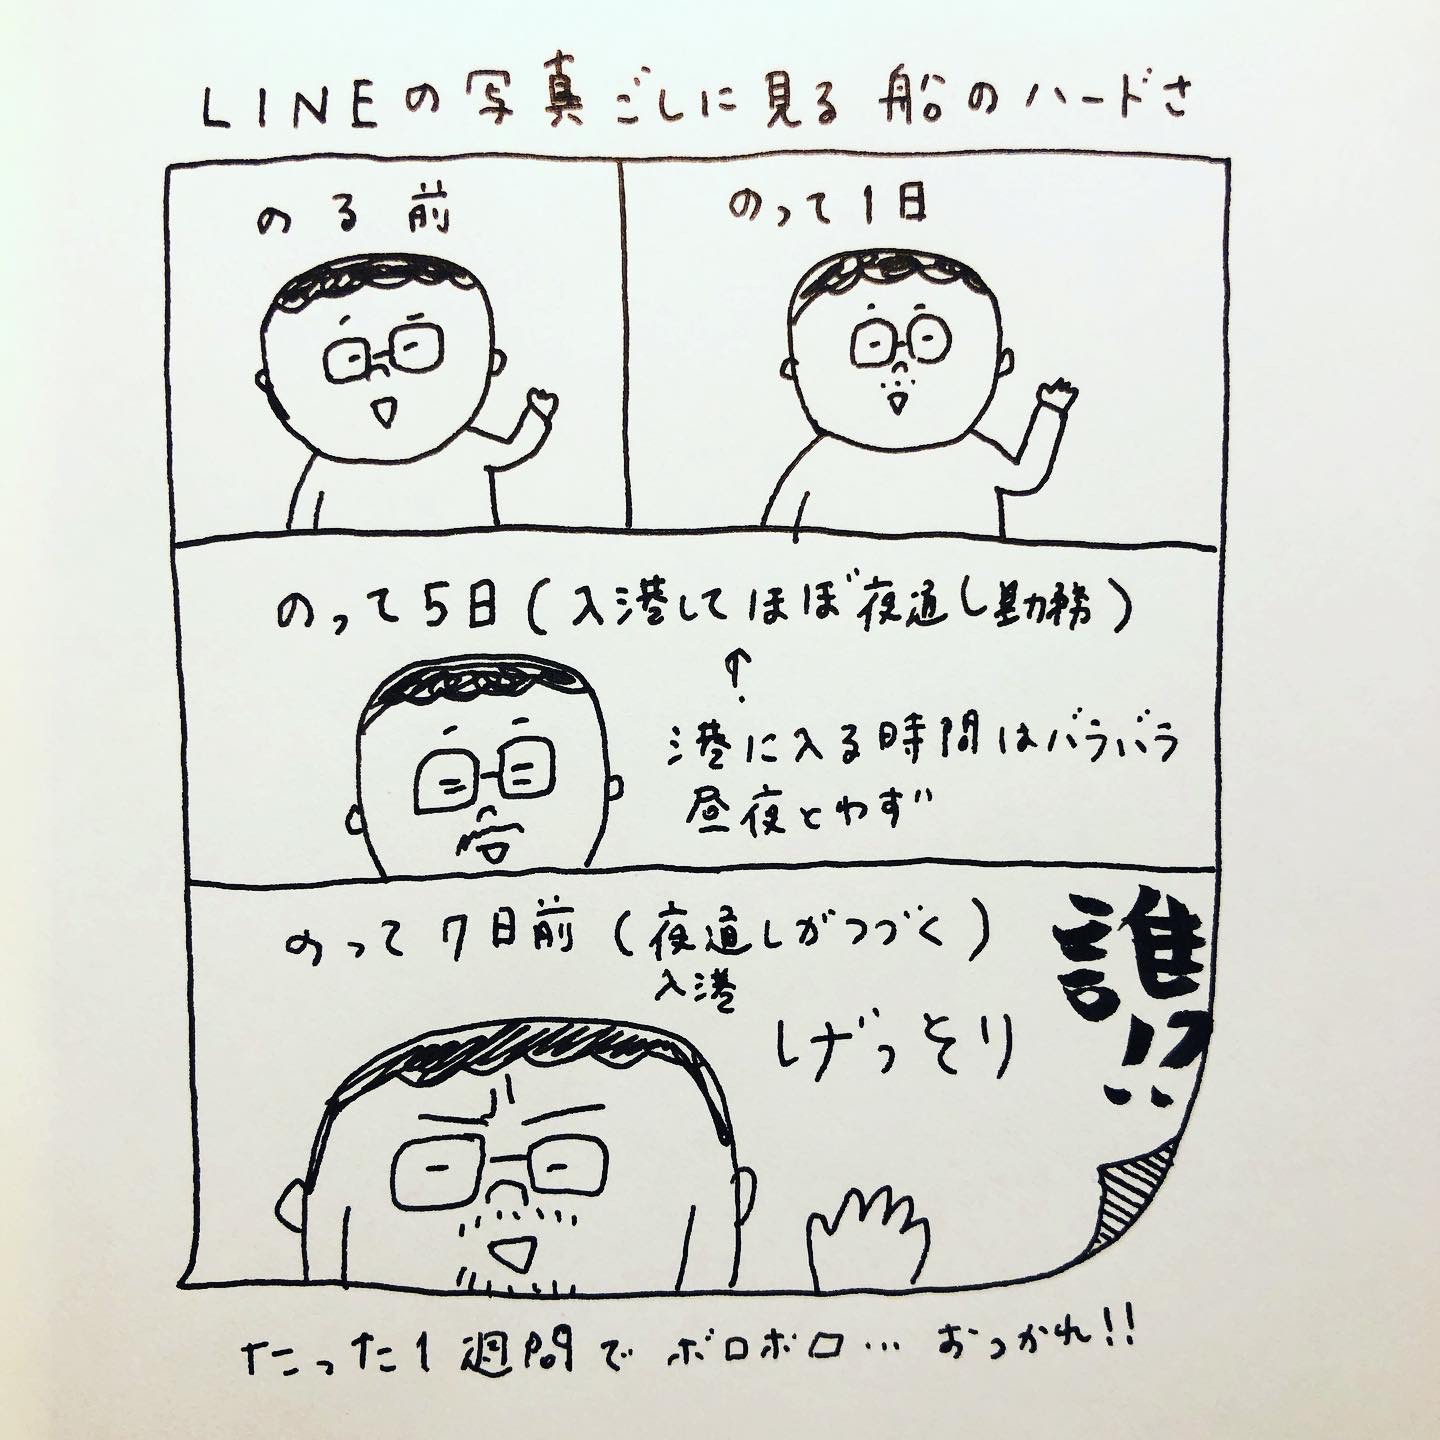 LINEの写真ごしに見る船のハードさ
のる前
のって1日
のって5日(入港してほぼ夜通し勤務)
↑
港に入る時間はバラバラ
昼夜とわず
のって7日前(夜通しがつづく)
入港
げっそり
誰!?
たった1週間でボロボロ… おつかれ!!